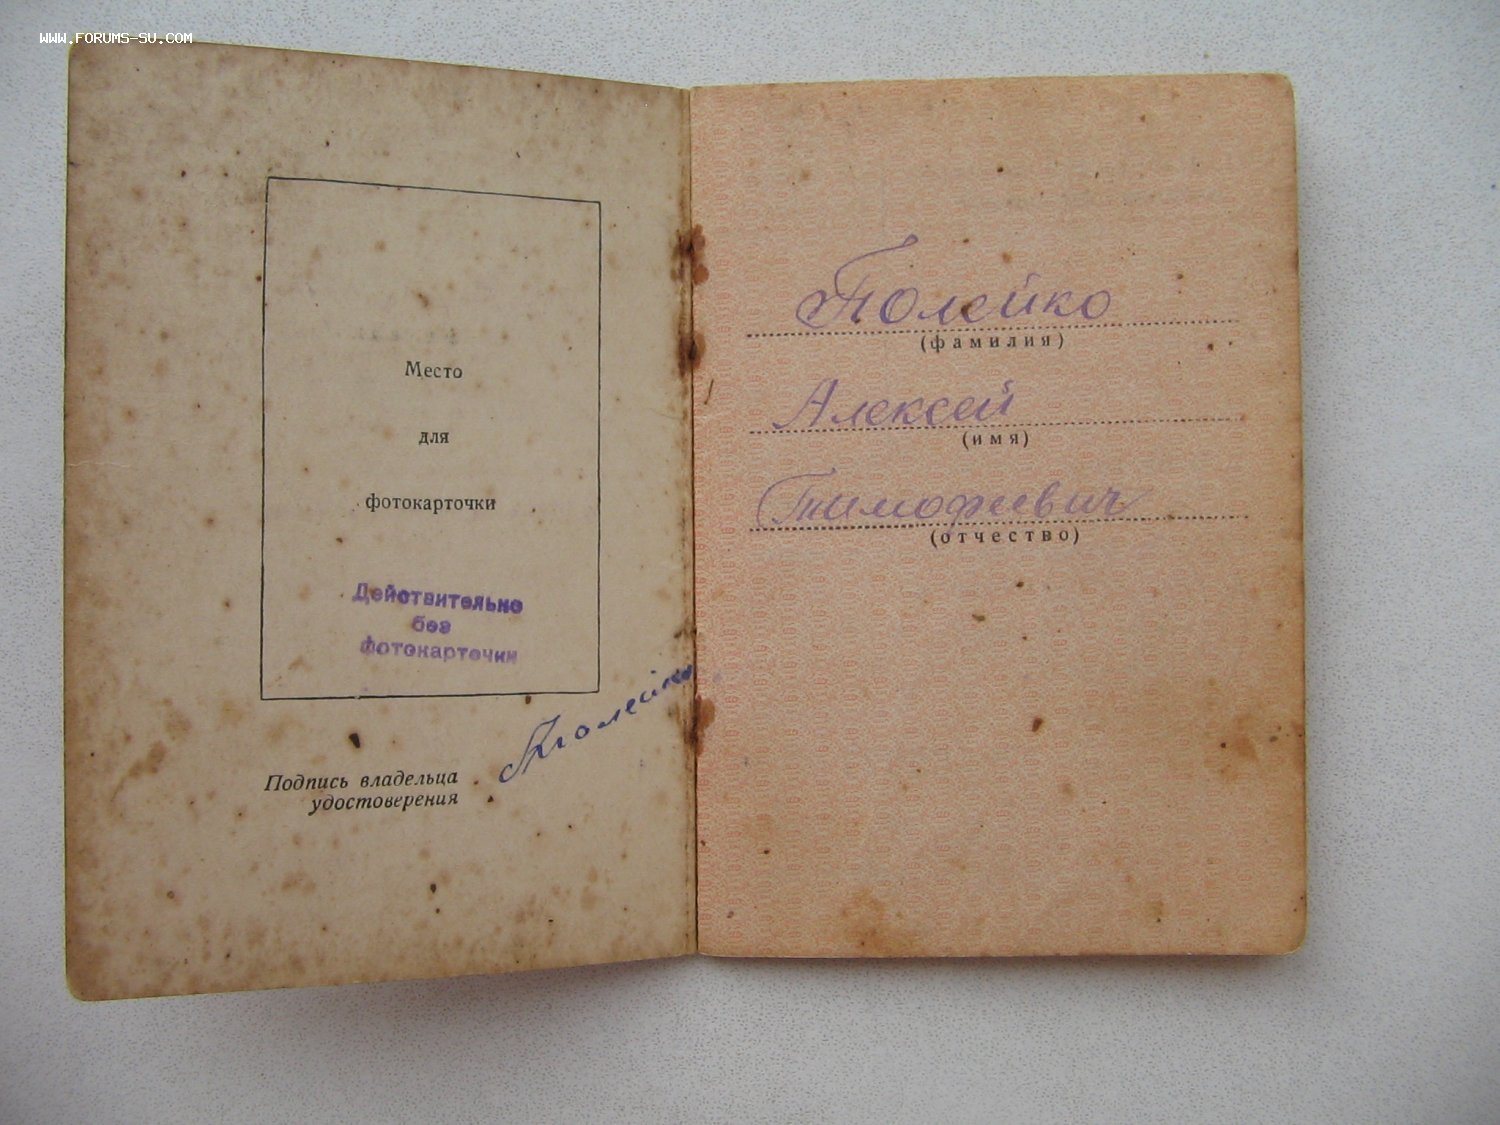 WWW.FORUMS-SU.COM
Место
для
фотокарточки
Действительно
без
фотокарточки
Полейко
Подпись владельца
удостоверения
Полейко
(фамилия)
Алексей
(имя)
Тимофеевич
(отчество)